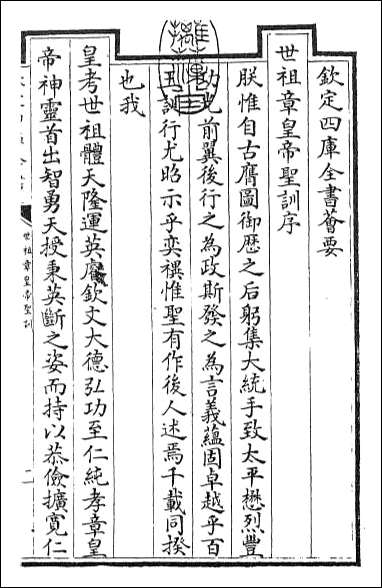 欽定四庫全書薈要
世祖章皇帝聖訓序
朕惟自古膺圖御歴之后躬集大統手致太平懋烈豐
功光前翼後行之為政斯發之為言義蘊固卓越乎百
王訓行尤昭示乎奕禩惟聖有作後人述焉千載同揆
也我
皇考世祖體天隆運英睿欽文大德弘功至仁純孝章皇
帝神靈首出智勇天授秉英斷之姿而持以恭儉擴寛仁
世祖章皇帝聖訓
一